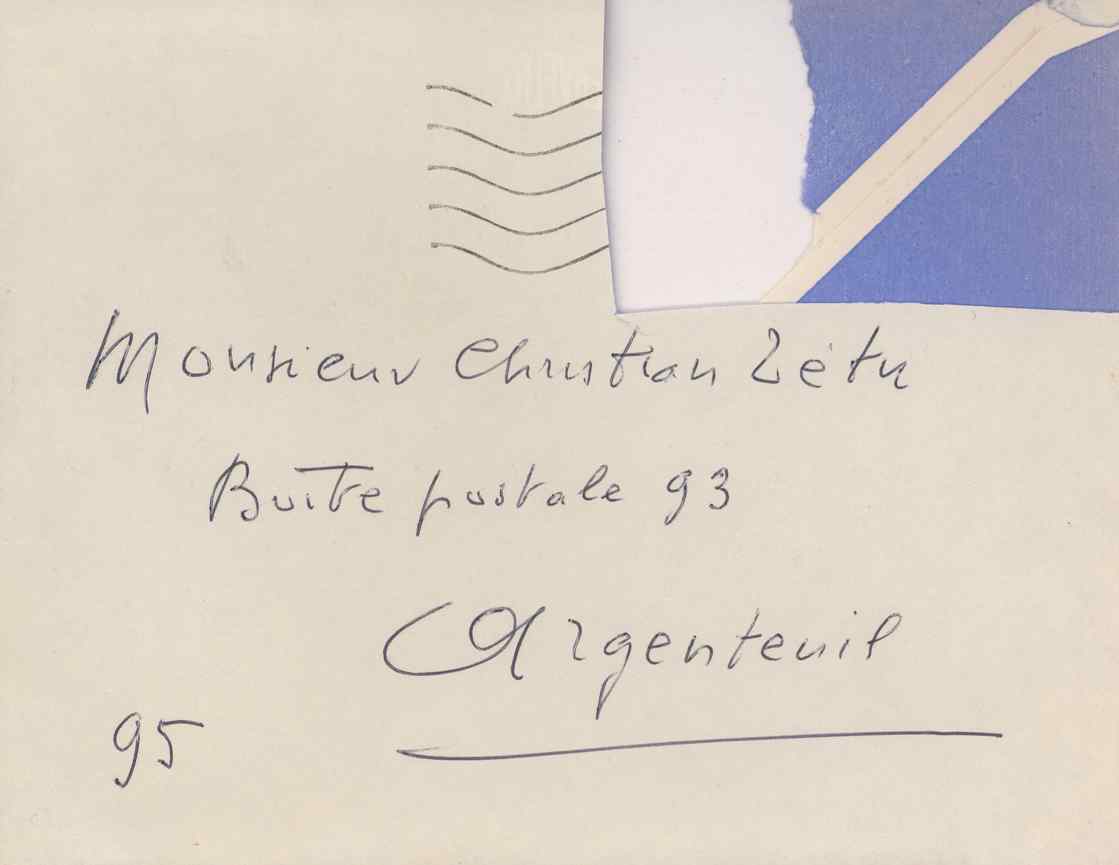 Monsieur Christian Zétu
Boite postale 93
Argenteuil
95